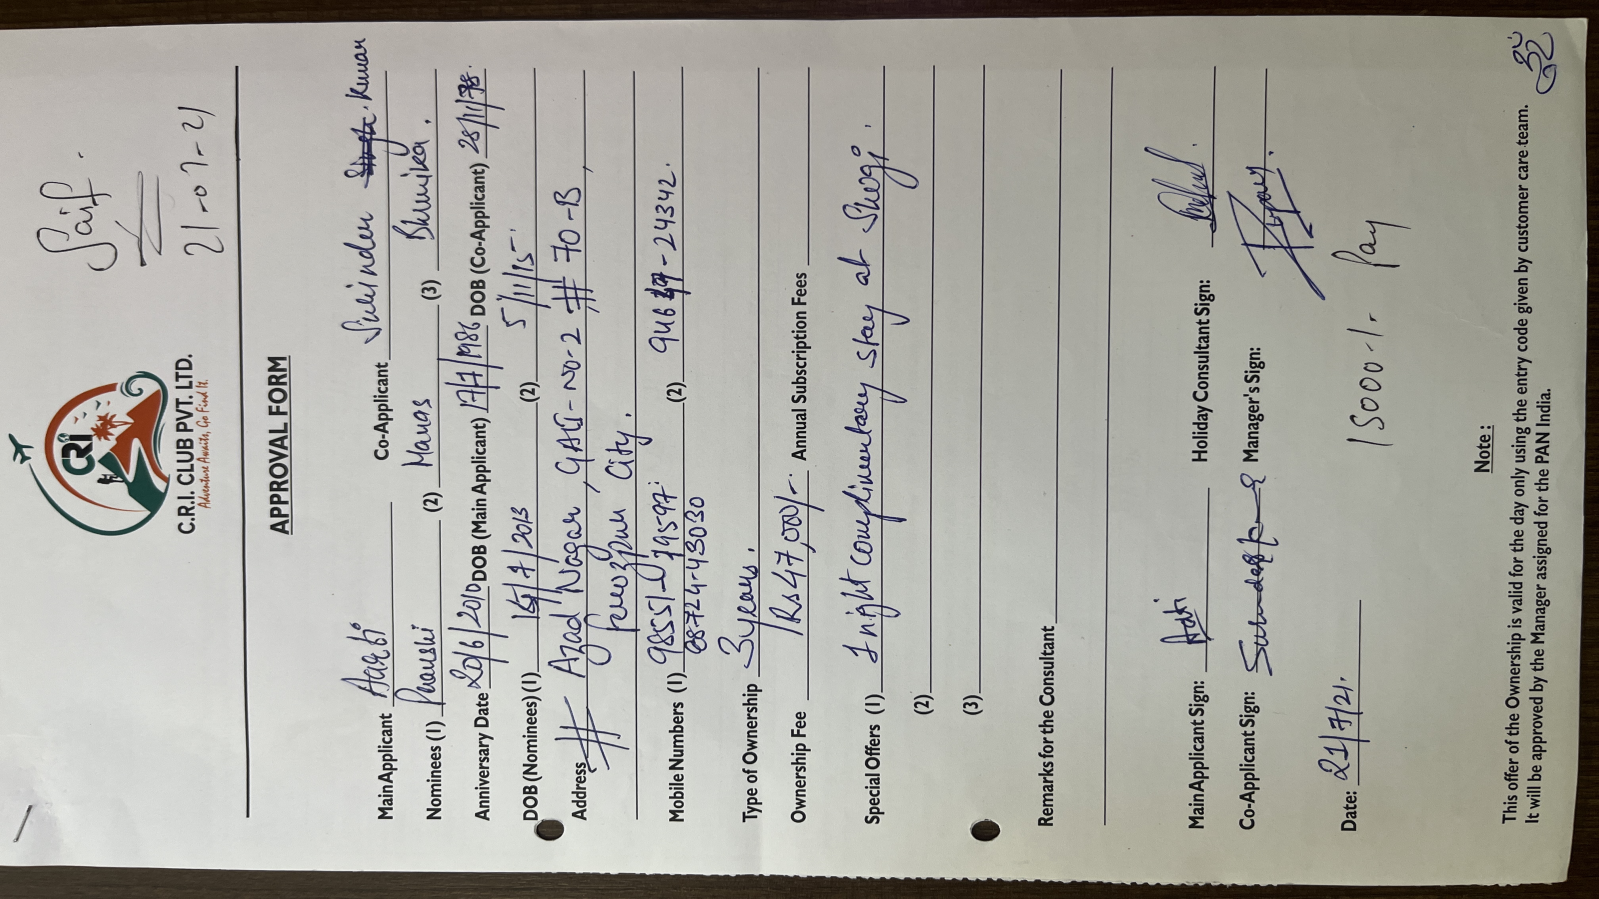 Saif.
21-07-21
CRI
C.R.I. CLUB PVT. LTD.
Adventure Awaits, Go Find It.
APPROVAL FORM
Main Applicant Co-Applicant Surinder Kumar
Nominees (1) (2) Manas (3) Bhumika.
Anniversary Date 20/6/2010 DOB (Main Applicant) 17/7/1986 DOB (Co-Applicant) 28/11/78.
DOB (Nominees) (1) 15/7/2013 (2) 5/11/15
Address # Azad Nagar, GALI-NO-2 # 70-B,
Ferozpur City.
Mobile Numbers (1) 98551-79597 (2)
88724-43030
Type of Ownership 3 years.
Ownership Fee Rs 47,000/- Annual Subscription Fees
Special Offers (1) 1 night complimentary stay at Shogi.
(2)
(3)
Remarks for the Consultant
Main Applicant Sign: Holiday Consultant Sign:
Co-Applicant Sign: Manager's Sign:
Date: 21/7/21.
15000/- Pay
Note :
This offer of the Ownership is valid for the day only using the entry code given by customer care team.
It will be approved by the Manager assigned for the PAN India.